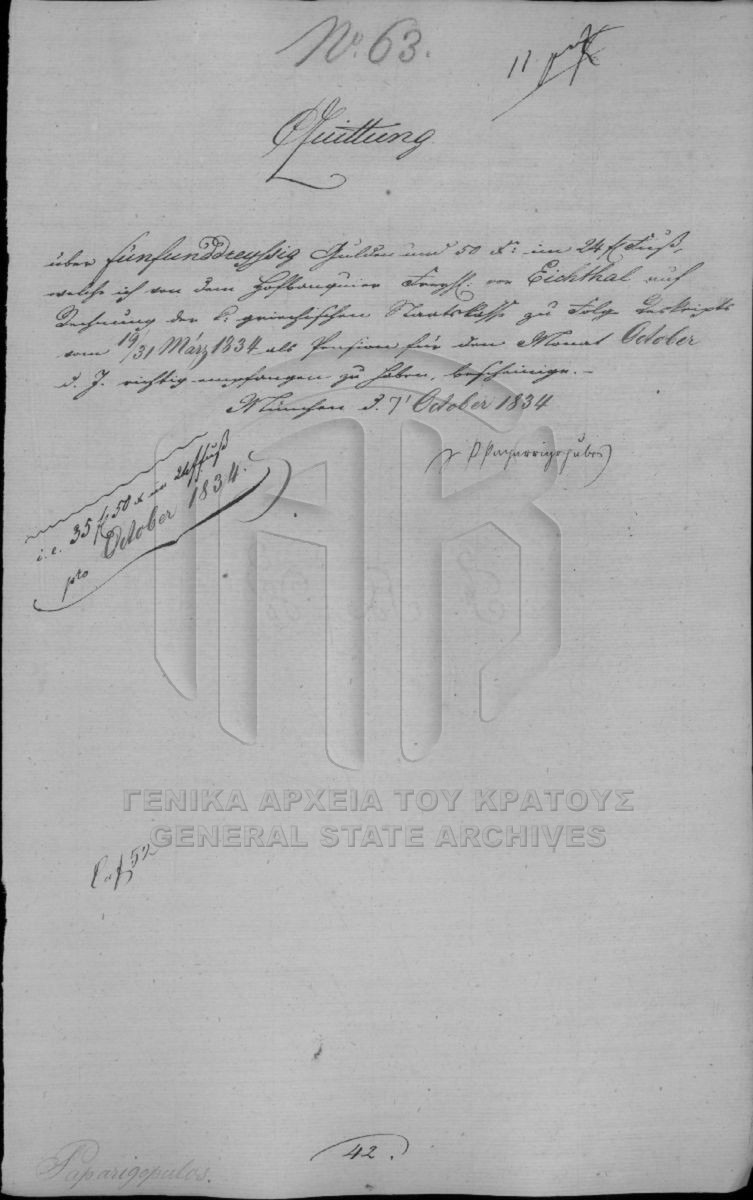 No. 63.
11
Quittung
über fünfunddreyssig Gulden und 50 Xr: im 24 fl Fuß,
welche ich von dem Hofbanquier Freyh. von Eichthal auf
Rechnung der k: griechischen Staatskasse zu Folge Reskripts
vom 19/31 März 1834 als Pension für den Monat October
d. J. richtig empfangen zu haben, bescheinige. –
München d. 7t October 1834
i. e. 35 fl 50 x im 24 fl fuß
pto October 1834.
ΓΕΝΙΚΑ ΑΡΧΕΙΑ ΤΟΥ ΚΡΑΤΟΥΣ
GENERAL STATE ARCHIVES
42.
Paparigopulos.